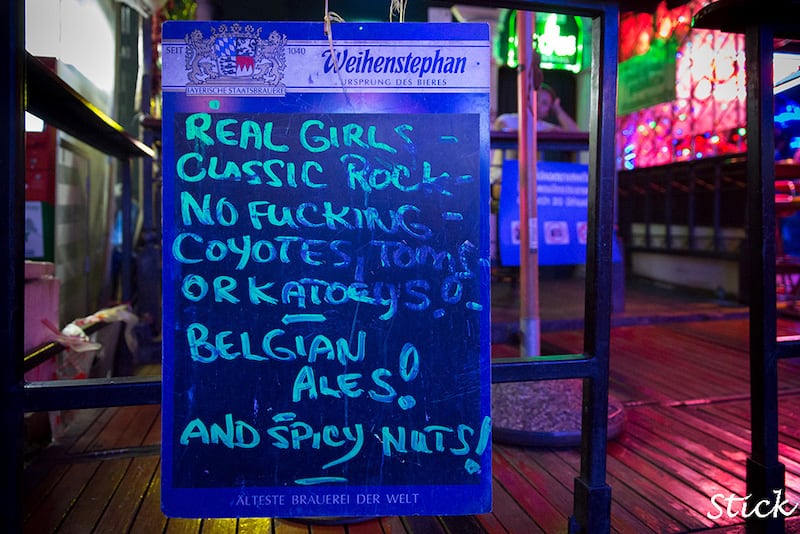 SEIT 1040
BAYERISCHE STAATSBRAUEREI
Weihenstephan
URSPRUNG DES BIERES
REAL GIRLS -
CLASSIC ROCK -
NO FUCKING -
COYOTES, TOMS
OR KATOEYS!!
BELGIAN
ALES!
AND SPICY NUTS!
ÄLTESTE BRAUEREI DER WELT
Stick